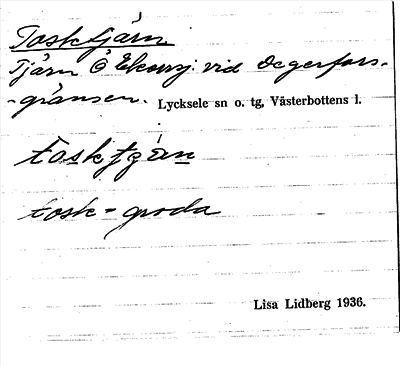 Tosktjärn
Tjärn Ö Ekorrsj. vid Degerfors-
-gränsen. Lycksele sn o. tg, Västerbottens l.
tosktjän
tosk = groda
Lisa Lidberg 1936.